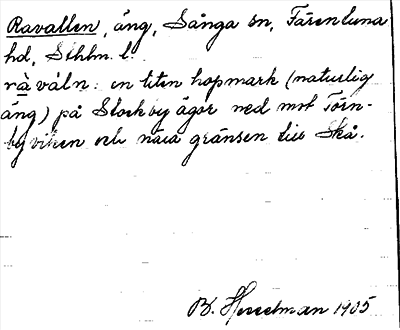 Ravallen, äng, Sånga sn, Färentuna
hd, Sthlm. l.
ràváln: en liten hopmark (naturlig
äng) på Stockby ägor ned mot Törn-
byviken och nära gränsen till Skå.
B. Hesselman 1905